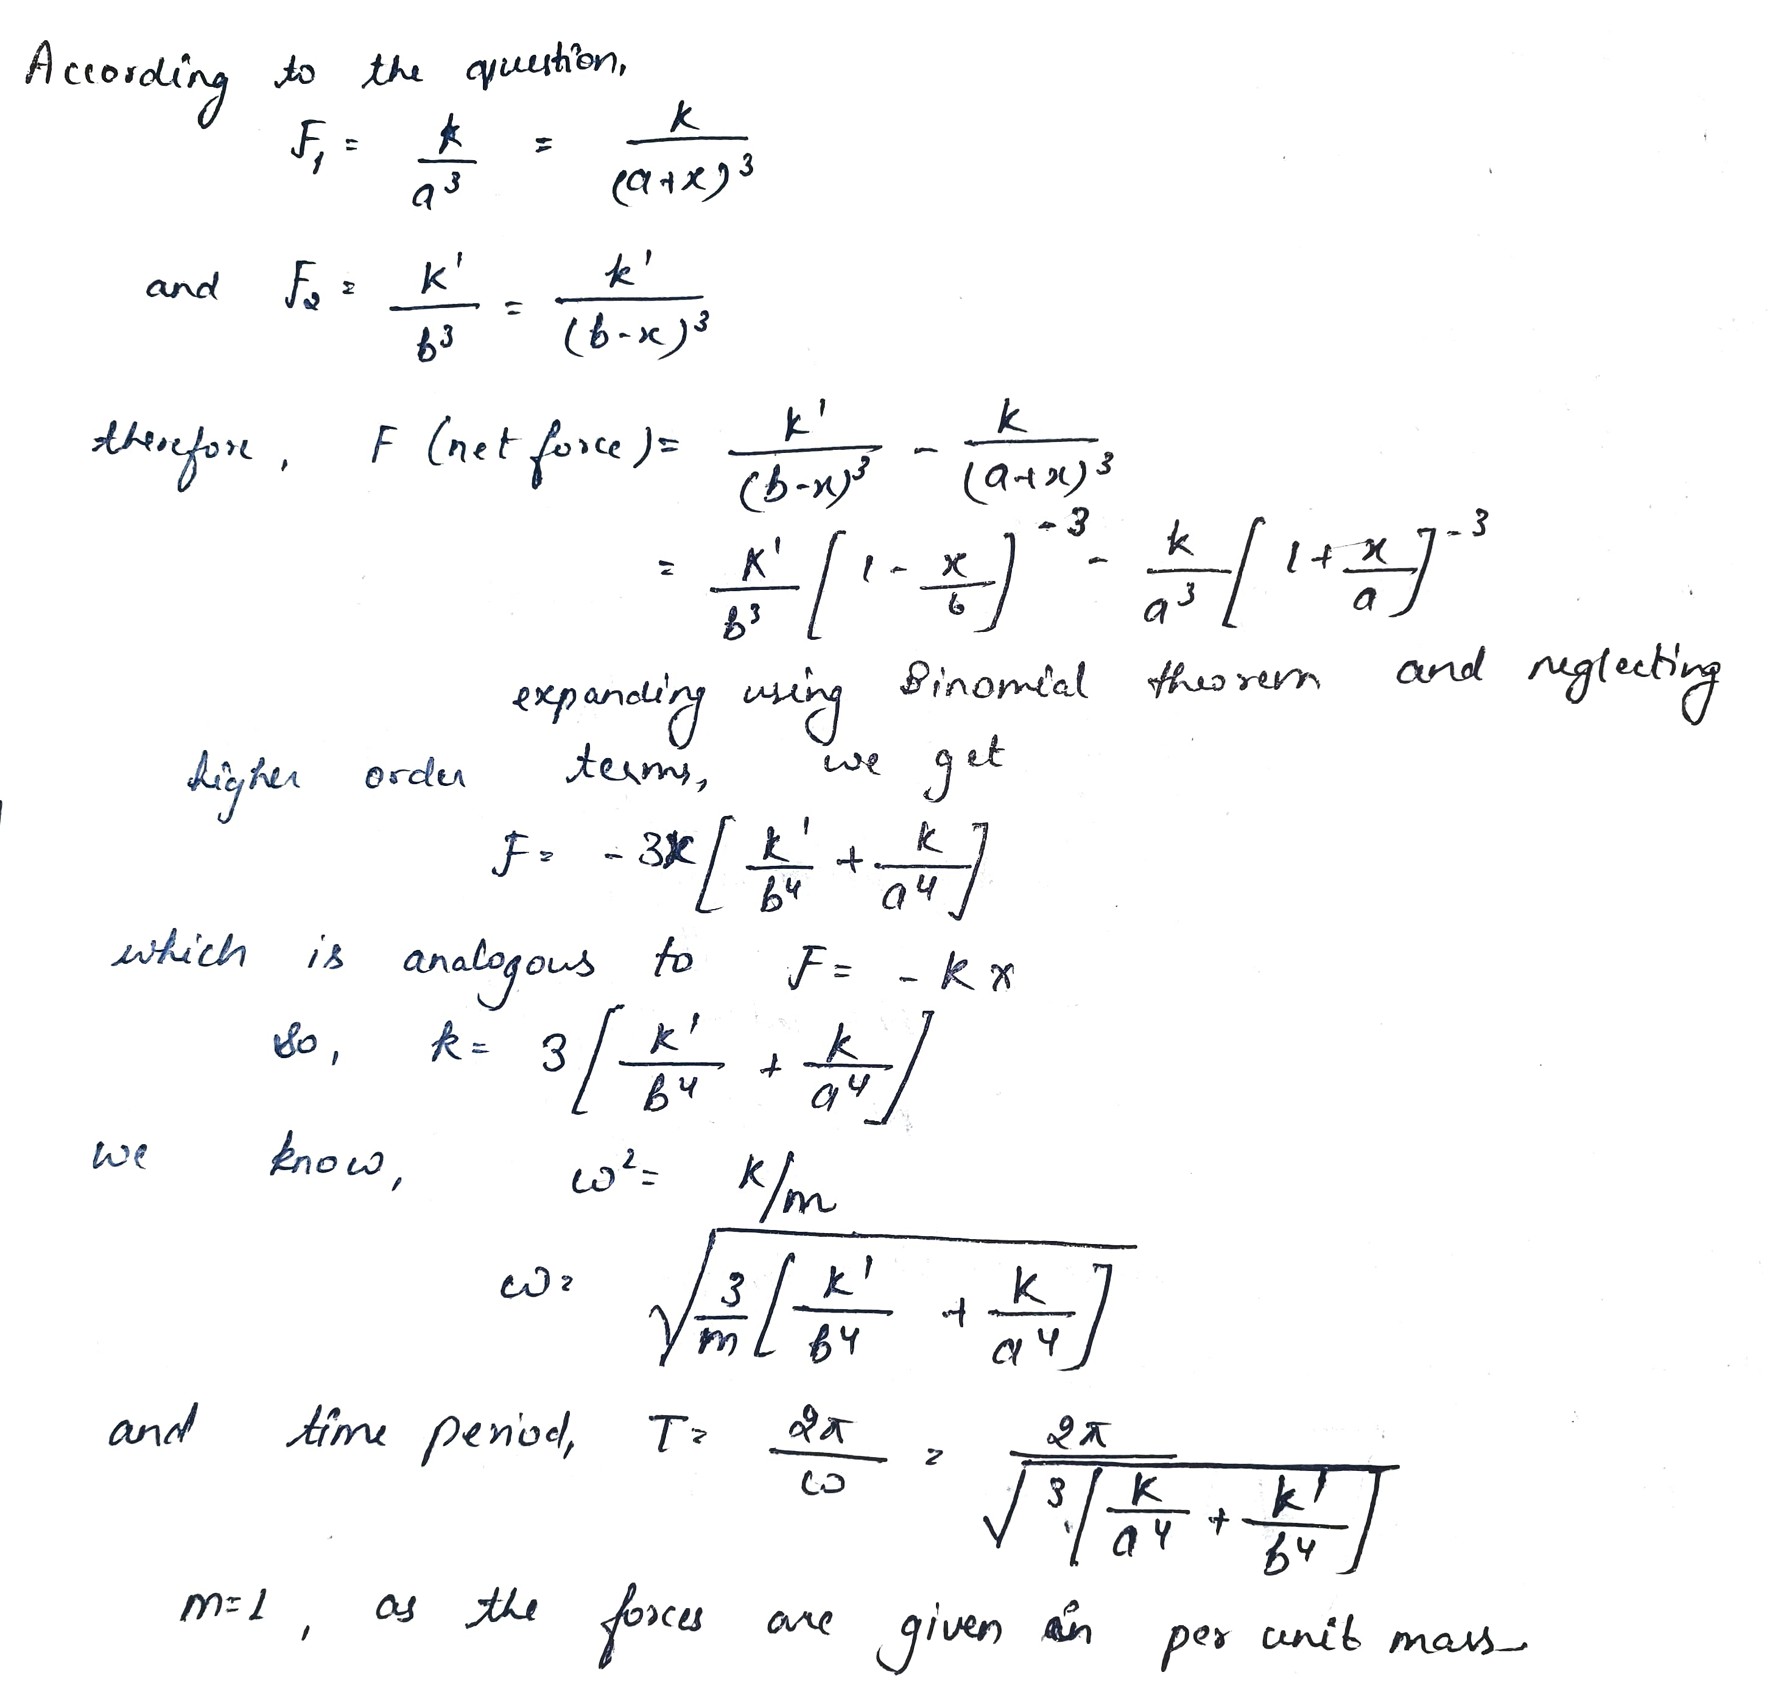 According to the question,
F₁ = k/a³ = k/(a+x)³
and F₂ = k'/b³ = k'/(b-x)³
therefore, F (net force) = k'/(b-x)³ - k/(a+x)³
= k'/b³ [1 - x/b]⁻³ - k/a³ [1 + x/a]⁻³
expanding using Binomial theorem and neglecting
higher order terms, we get
F = -3x [k'/b⁴ + k/a⁴]
which is analogous to F = -kx
so, k = 3 [k'/b⁴ + k/a⁴]
we know, ω² = k/m
ω = √(3/m [k'/b⁴ + k/a⁴])
and time period, T = 2π/ω = 2π/√(3 [k/a⁴ + k'/b⁴])
m=1, as the forces are given in per unit mass